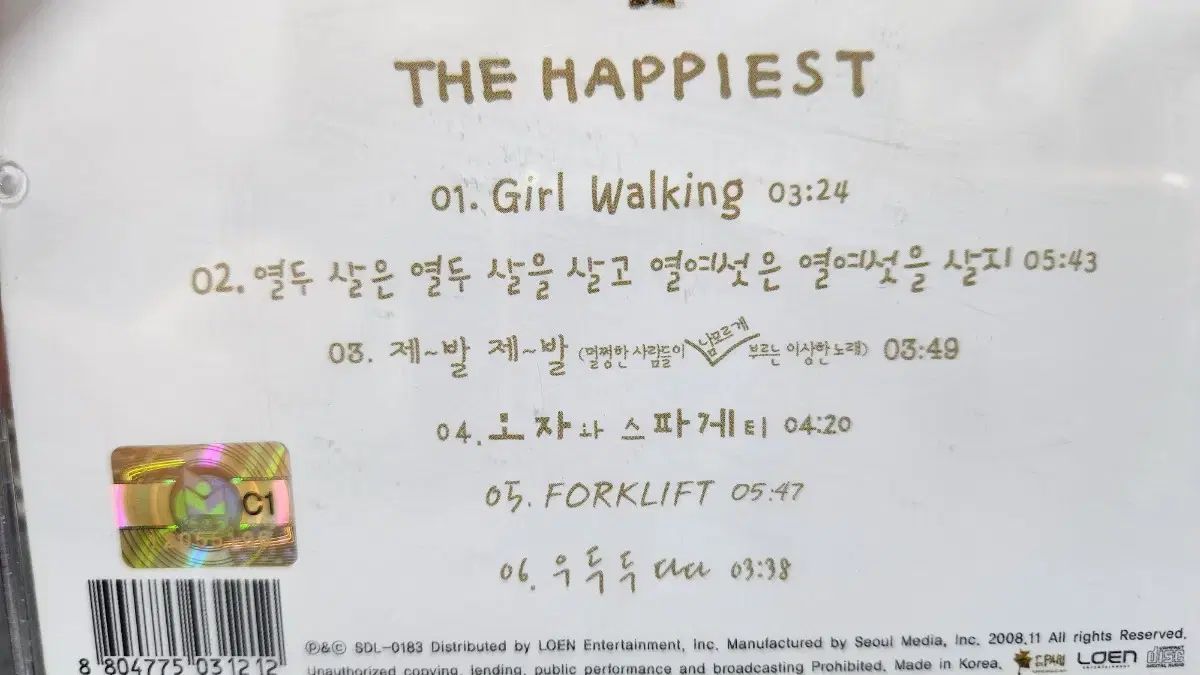 THE HAPPIEST
01. Girl Walking 03:24
02. 열두 살은 열두 살을 살고 열여섯은 열여섯을 살지 05:43
03. 제~발 제~발 (멀쩡한 사람들이 남모르게 부르는 이상한 노래) 03:49
04. 오자와 스파게티 04:20
05. FORKLIFT 05:47
06. 우두두다다 03:38
C1
8 804775 031212
℗&© SDL-0183 Distributed by LOEN Entertainment, Inc. Manufactured by Seoul Media, Inc. 2008.11 All rights Reserved.
Unauthorized copying, lending, public performance and broadcasting Prohibited. Made in Korea.
LOEN
ENTERTAINMENT
COMPACT
disc
DIGITAL AUDIO